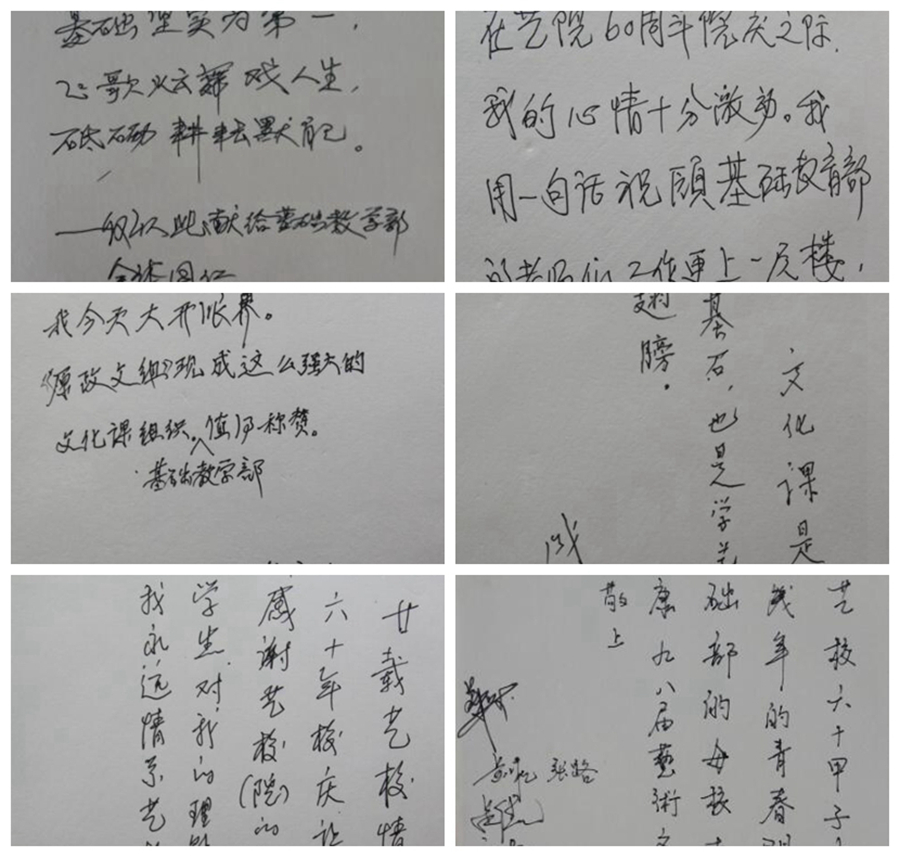 基础坚实为第一，
飞歌炫舞戏人生，
砥砺耕耘默自己。
——仅以此献给基础教学部
全体同仁
在艺院60周年院庆之际，
我的心情十分激动。我
用一句话祝愿基础教育部
的老师们工作更上一层楼，
我今天大开眼界。
原政文组现成这么强大的
文化课组织。值得称赞。
基础教学部
文化课是
基石，也是学
翅膀。
廿载艺校情
六十年校庆
感谢艺校(院)的
学生对我的理
我永远情系艺
艺校六十甲子
年的青春
础部的母校
康九八届藝術
敬上
张路